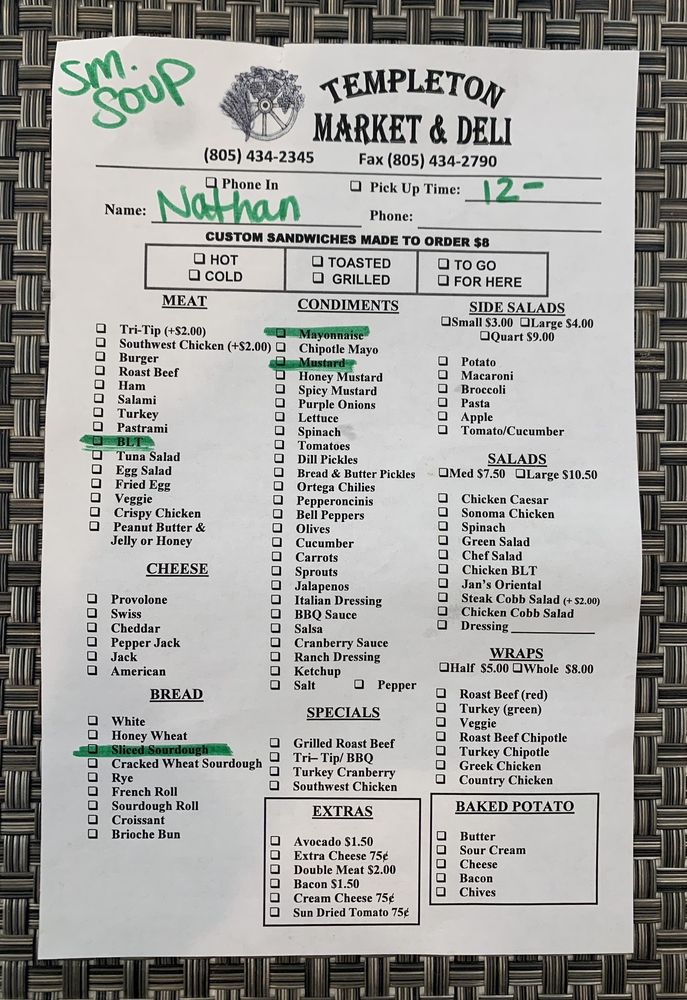 SM.
SOUP
TEMPLETON
MARKET & DELI
(805) 434-2345 Fax (805) 434-2790
❑ Phone In ❑ Pick Up Time: 12-
Name: Nathan Phone:
CUSTOM SANDWICHES MADE TO ORDER $8
❑ HOT ❑ TOASTED ❑ TO GO
❑ COLD ❑ GRILLED ❑ FOR HERE
MEAT
❑ Tri-Tip (+$2.00)
❑ Southwest Chicken (+$2.00)
❑ Burger
❑ Roast Beef
❑ Ham
❑ Salami
❑ Turkey
❑ Pastrami
❑ BLT
❑ Tuna Salad
❑ Egg Salad
❑ Fried Egg
❑ Veggie
❑ Crispy Chicken
❑ Peanut Butter &
Jelly or Honey
CHEESE
❑ Provolone
❑ Swiss
❑ Cheddar
❑ Pepper Jack
❑ Jack
❑ American
BREAD
❑ White
❑ Honey Wheat
❑ Sliced Sourdough
❑ Cracked Wheat Sourdough
❑ Rye
❑ French Roll
❑ Sourdough Roll
❑ Croissant
❑ Brioche Bun
CONDIMENTS
❑ Mayonnaise
❑ Chipotle Mayo
❑ Mustard
❑ Honey Mustard
❑ Spicy Mustard
❑ Purple Onions
❑ Lettuce
❑ Spinach
❑ Tomatoes
❑ Dill Pickles
❑ Bread & Butter Pickles
❑ Ortega Chilies
❑ Pepperoncinis
❑ Bell Peppers
❑ Olives
❑ Cucumber
❑ Carrots
❑ Sprouts
❑ Jalapenos
❑ Italian Dressing
❑ BBQ Sauce
❑ Salsa
❑ Cranberry Sauce
❑ Ranch Dressing
❑ Ketchup
❑ Salt ❑ Pepper
SPECIALS
❑ Grilled Roast Beef
❑ Tri– Tip/ BBQ
❑ Turkey Cranberry
❑ Southwest Chicken
EXTRAS
❑ Avocado $1.50
❑ Extra Cheese 75¢
❑ Double Meat $2.00
❑ Bacon $1.50
❑ Cream Cheese 75¢
❑ Sun Dried Tomato 75¢
SIDE SALADS
❑Small $3.00 ❑Large $4.00
❑Quart $9.00
❑ Potato
❑ Macaroni
❑ Broccoli
❑ Pasta
❑ Apple
❑ Tomato/Cucumber
SALADS
❑Med $7.50 ❑Large $10.50
❑ Chicken Caesar
❑ Sonoma Chicken
❑ Spinach
❑ Green Salad
❑ Chef Salad
❑ Chicken BLT
❑ Jan's Oriental
❑ Steak Cobb Salad (+ $2.00)
❑ Chicken Cobb Salad
❑ Dressing
WRAPS
❑Half $5.00 ❑Whole $8.00
❑ Roast Beef (red)
❑ Turkey (green)
❑ Veggie
❑ Roast Beef Chipotle
❑ Turkey Chipotle
❑ Greek Chicken
❑ Country Chicken
BAKED POTATO
❑ Butter
❑ Sour Cream
❑ Cheese
❑ Bacon
❑ Chives